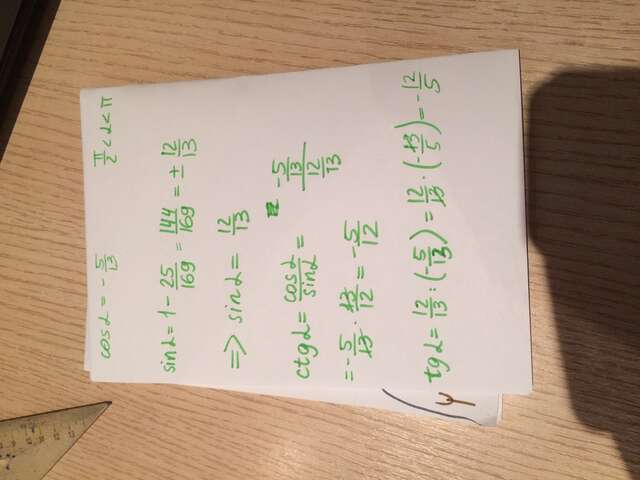 cos α = - 5/13 π/2 < α < π
sin α = 1 - 25/169 = 144/169 = ± 12/13
=> sin α = 12/13
ctg α = cos α/sin α = (-5/13)/(12/13)
= - 5/13 · 13/12 = - 5/12
tg α = 12/13 : (- 5/13) = 12/13 · (- 13/5) = - 12/5
y